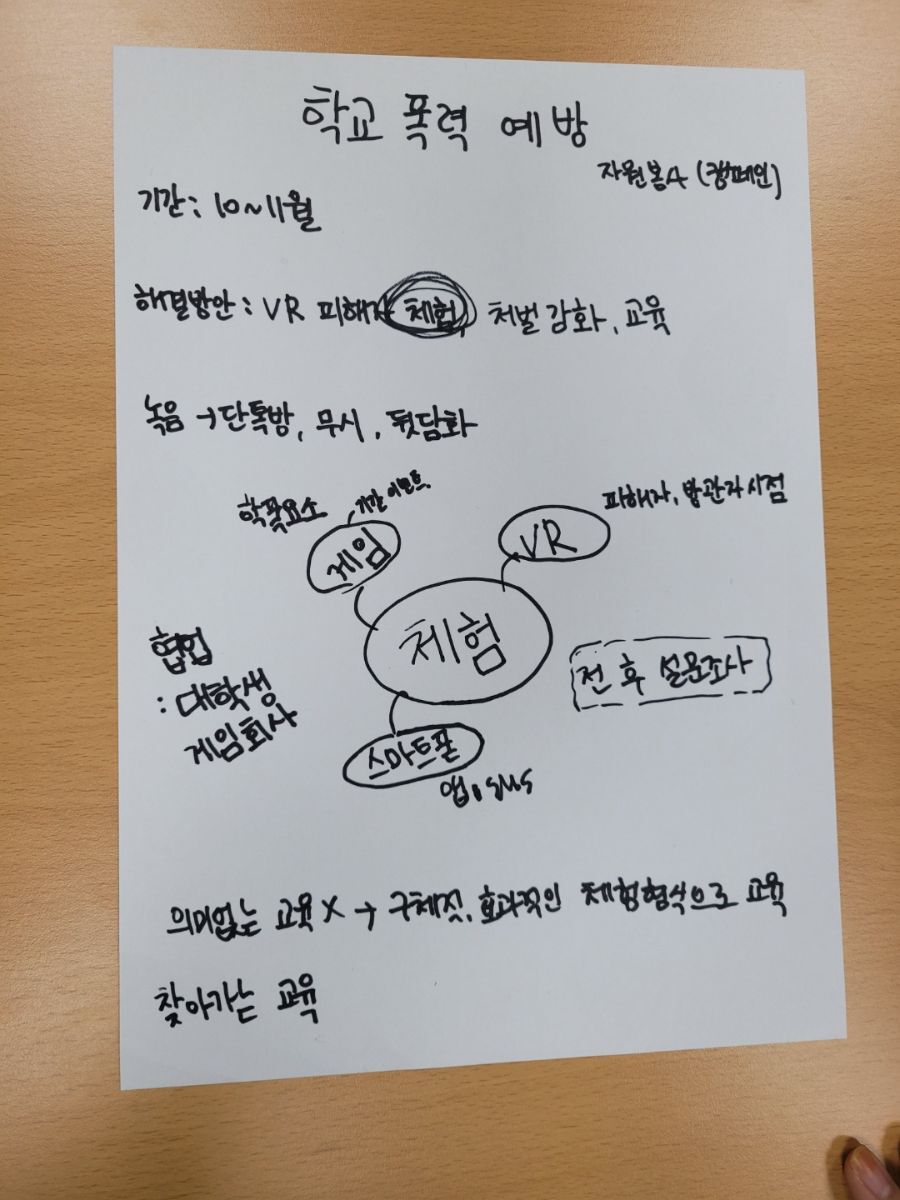 학교 폭력 예방
자원봉사 (캠페인)
기간: 10~11월
해결방안: VR 피해자 체험, 처벌 강화, 교육
녹음 → 단톡방, 무시, 뒷담화
학폭요소
기간 이벤트
게임
VR
피해자, 방관자 시점
체험
협업
: 대학생
게임회사
전 후 설문조사
스마트폰
앱, SNS
의미없는 교육 X → 구체적, 효과적인 체험형식으로 교육
찾아가는 교육